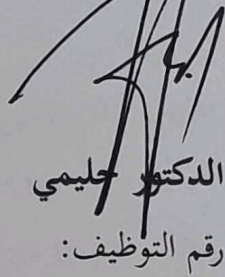 الدكتور حليمي
رقم التوظيف: